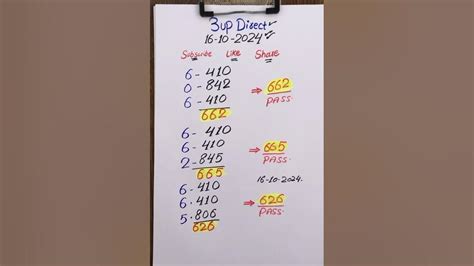 3up Direct✓
16-10-2024✓✓
Subscribe Like Share
6-410
0-842
6-410
662
⇒ 662
PASS.
6-410
6-410
2-845
665
⇒ 665
PASS.
16-10-2024.
6.410
6.410
5.806
626
⇒ 626
PASS.